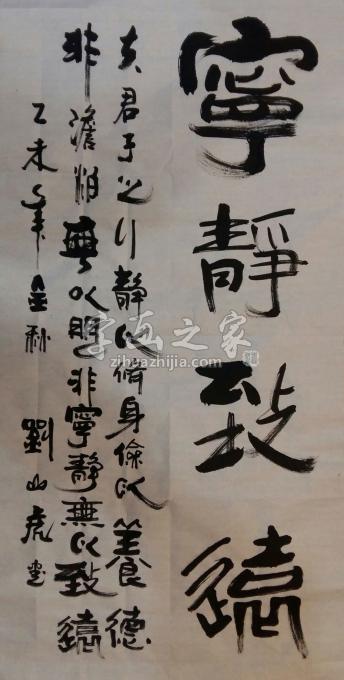 寧靜致遠
夫君子之行靜以修身儉以養德
非澹泊無以明非寧靜無以致遠
乙未年金秋 劉山虎書
字画之家
zihuazhijia.com